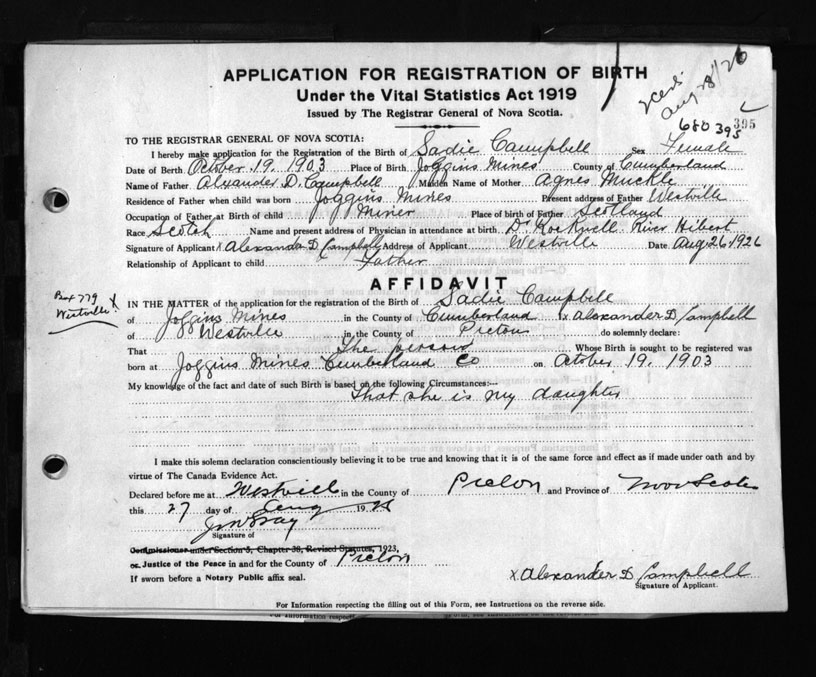 APPLICATION FOR REGISTRATION OF BIRTH
Under the Vital Statistics Act 1919
Issued by The Registrar General of Nova Scotia.
Aug 28/26
680395
395
TO THE REGISTRAR GENERAL OF NOVA SCOTIA:
I hereby make application for the Registration of the Birth of Sadie Campbell Sex Female
Date of Birth October 19, 1903 Place of Birth Joggins Mines County of Cumberland
Name of Father Alexander D. Campbell Maiden Name of Mother Agnes Muckle
Residence of Father when child was born Joggins Mines Present address of Father Westville
Occupation of Father at Birth of child Miner Place of birth of Father Scotland
Race Scotch Name and present address of Physician in attendance at birth. Dr Rockwell River Hibert
Signature of Applicant x Alexander D Campbell Address of Applicant Westville Date Aug 26 1926
Relationship of Applicant to child Father
AFFIDAVIT
Box 779
Westville
IN THE MATTER of the application for the registration of the Birth of Sadie Campbell
of Joggins Mines in the County of Cumberland x Alexander D Campbell
of Westville in the County of Pictou do solemnly declare:
That The person Whose Birth is sought to be registered was
born at Joggins Mines Cumberland Co on October 19. 1903
My knowledge of the fact and date of such Birth is based on the following Circumstances:—
That she is my daughter
I make this solemn declaration conscientiously believing it to be true and knowing that it is of the same force and effect as if made under oath and by
virtue of The Canada Evidence Act.
Declared before me at Westville in the County of Pictou and Province of Nova Scotia
this 27 day of Aug 1926
Signature of
Commissioner under Section 5, Chapter 38, Revised Statutes, 1923,
or Justice of the Peace in and for the County of Pictou
If sworn before a Notary Public affix seal.
x Alexander D Campbell
Signature of Applicant.
For Information respecting the filling out of this Form, see Instructions on the reverse side.